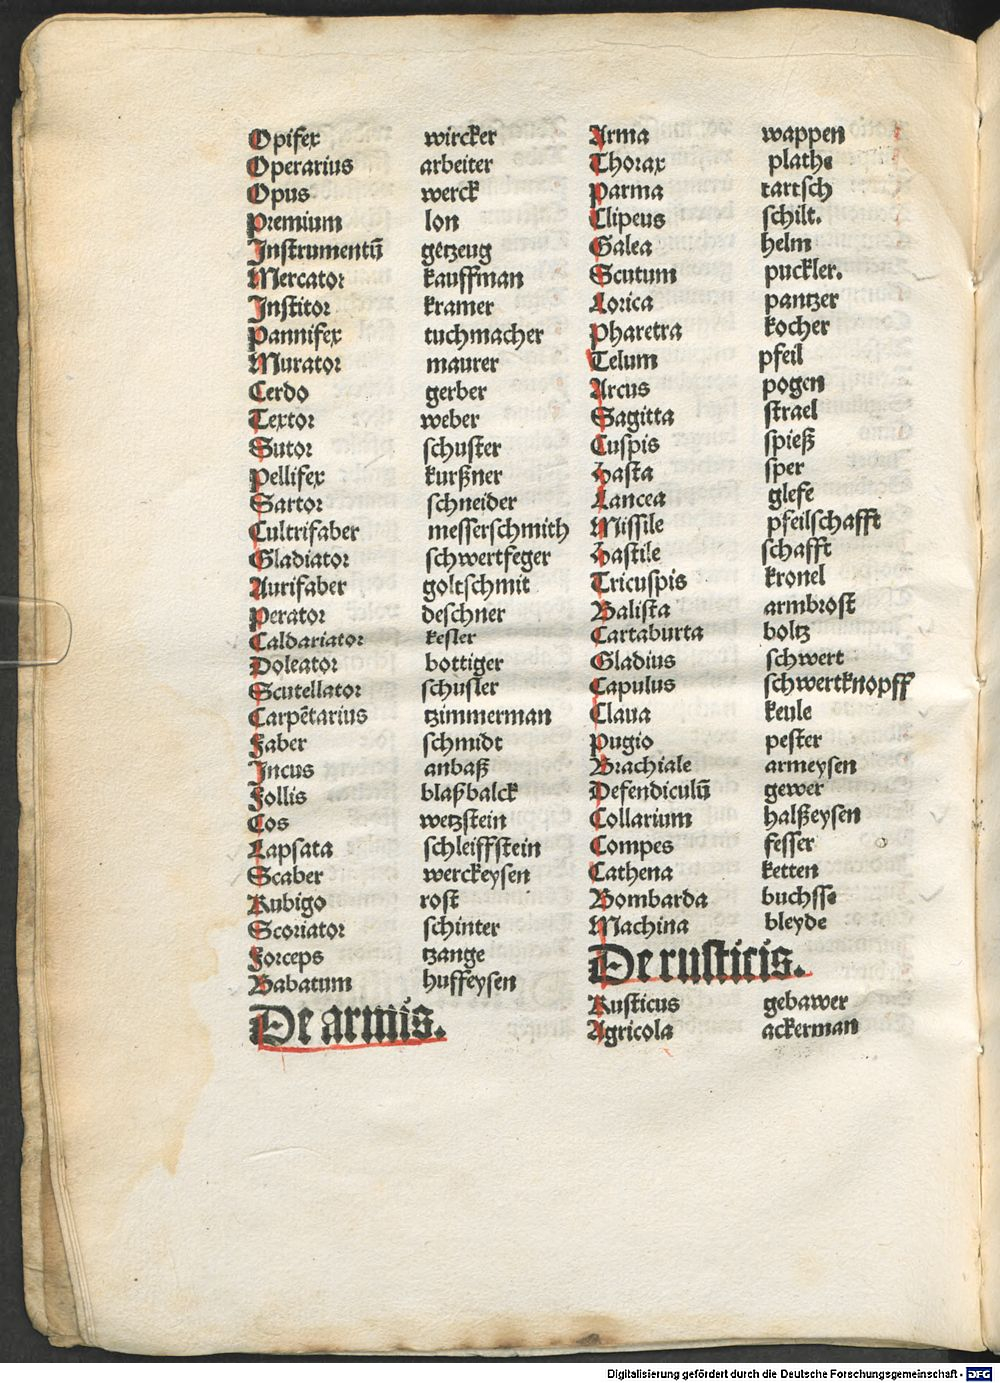 Opifex wircker
Operarius arbeiter
Opus werck
Premium lon
Instrumentū getzeug
Mercator kauffman
Institor kramer
Pannifex tuchmacher
Murator maurer
Cerdo gerber
Textor weber
Sutor schuster
Pellifex kurßner
Sartor schneider
Cultrifaber messerschmith
Gladiator schwertfeger
Aurifaber goltschmit
Perator deschner
Caldariator kesler
Doleator bottiger
Scutellator schusler
Carpētarius tzimmerman
Faber schmidt
Incus anbaß
Follis blaßbalck
Cos wetzstein
Lapsata schleiffstein
Scaber werckeysen
Rubigo rost
Scoriator schinter
Forceps tzange
Babatum huffeysen
De armis.
Arma wappen
Thorax plathe
Parma tartsch
Clipeus schilt.
Galea helm
Scutum puckler.
Lorica pantzer
Pharetra kocher
Telum pfeil
Arcus pogen
Sagitta strael
Cuspis spieß
Hasta sper
Lancea glefe
Missile pfeilschafft
Hastile schafft
Tricuspis kronel
Balista armbrost
Cartaburta boltz
Gladius schwert
Capulus schwertknopff
Claua keule
Pugio pester
Brachiale armeysen
Defendiculū gewer
Collarium halßeysen
Compes fesser
Cathena ketten
Bombarda buchsse
Machina bleyde
De rusticis.
Rusticus gebawer
Agricola ackerman
Digitalisierung gefördert durch die Deutsche Forschungsgemeinschaft - DFG